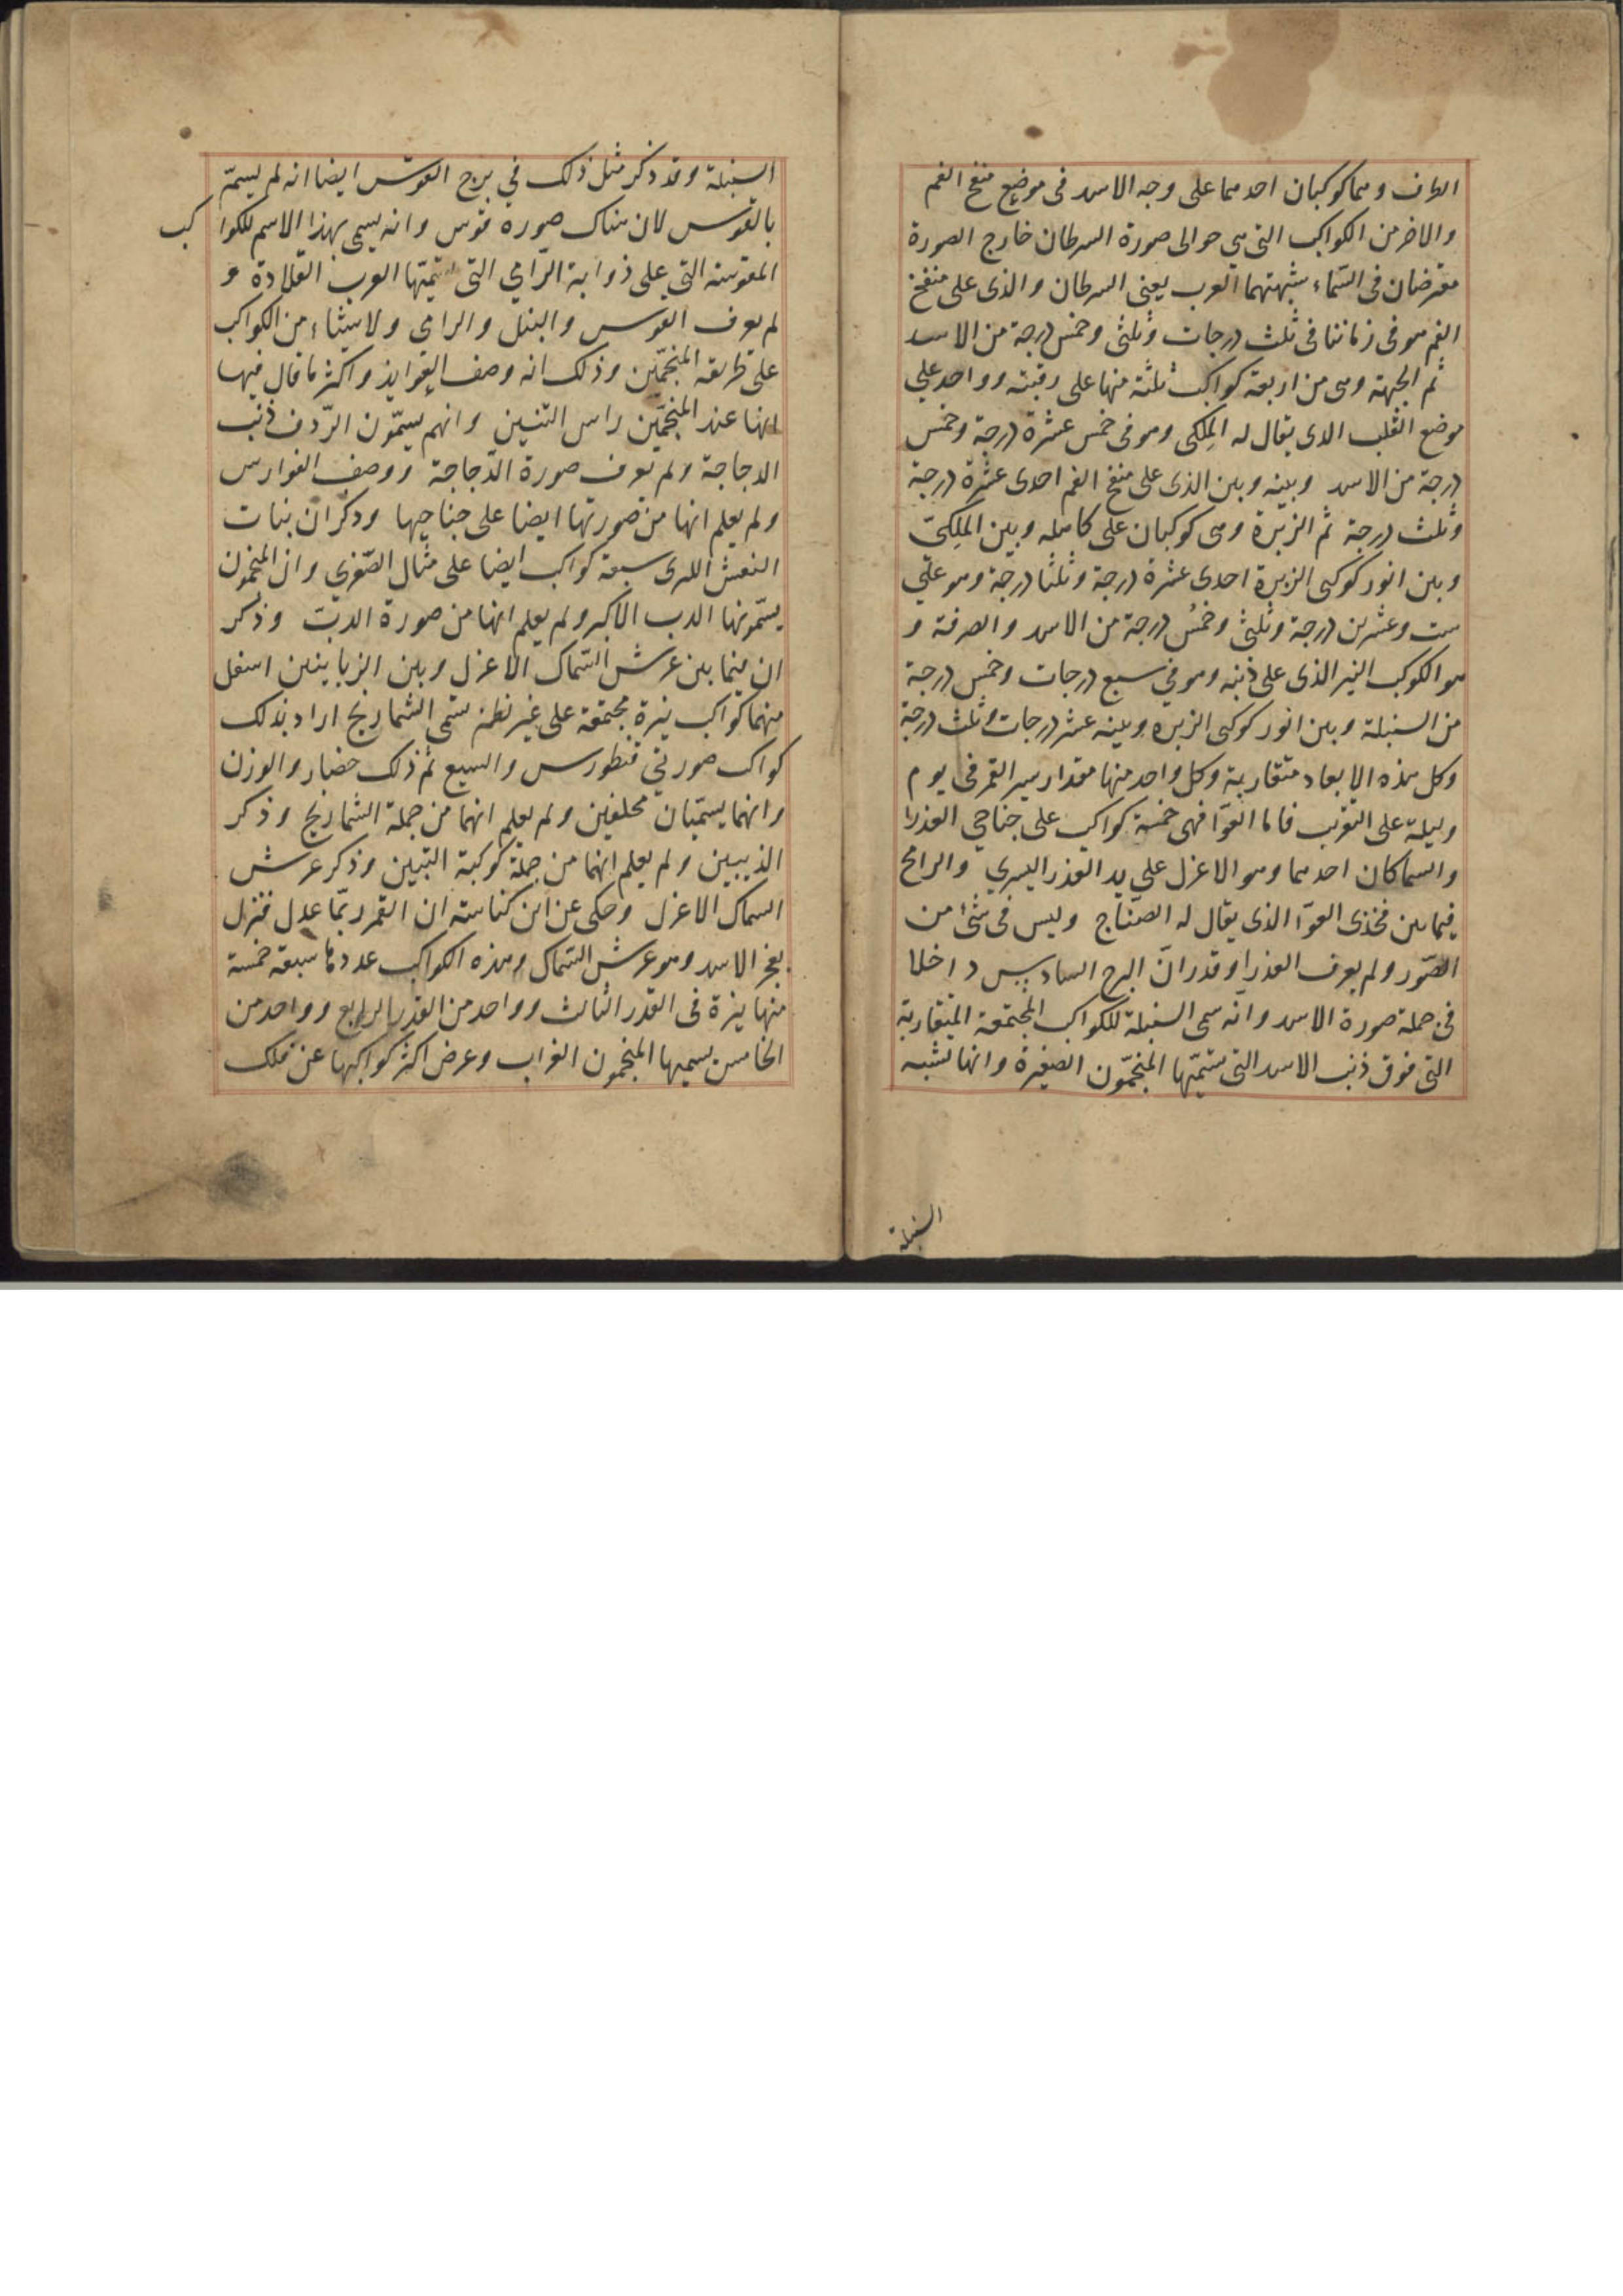 الطرف وهما كوكبان احدهما على وجه الاسد فى موضع منفخ الفم
والاخر من الكواكب التى هى حوالى صورة السرطان خارج الصورة
معترضان فى السّماء شبهتهما العرب يعنى السرطان والذى على منفخ
الفم هو فى زماننا فى ثلث درجات وثلثى وخمس درجة من الاسد
ثم الجبهة وهى من اربعة كواكب ثلثة منها على رقبته وواحد على
موضع القلب الذى يقال له المِلكى وهو فى خمس عشرة درجة وخمس
درجة من الاسد وبينه وبين الذى على منفخ الفم احدى عشرة درجة
وثلث درجة ثم الزبرة وهى كوكبان على كاهله وبين المِلكىّ
وبين انور كوكبى الزبرة احدى عشرة درجة وثلثا درجة وهو على
ست وعشرين درجة وثلثى وخمُس درجة من الاسد والصرفة و
هو الكوكب النير الذى على ذنبه وهو فى سبع درجات وخمس درجة
من السنبلة وبين انور كوكبى الزبره وبينه عشر درجات وثلث درجة
وكل هذه الابعاد متقاربة وكل واحد منها مقدار سير القمر فى يوم
وليلة على التقريب فاما العوّا فهى خمسة كواكب على جناحى العذرا
والسماكان احدهما وهو الاعزل على يد العذرا اليسرى والرامح
فيما بين فخذى العوّا الذى يقال له الصنّاج وليس فى شئ من
الصّور ولم يعرف العذرا وقدر انّ البرج السادس داخلا
فى جملة صورة الاسد وانّه سمى السنبلة للكواكب المجتمعة المتقاربة
التى فوق ذنب الاسد التى ستميّها المنجمّون الضفيرة وانها تشبه
السنبلة
السنبلة وقد ذكر مثل ذلك فى برج القوس ايضا انه لم يسمّ
بالقوس لان هناك صورة قوس وانه يسمى بهذا الاسم للكواكب
المقوسة التى على ذوابة الرّامى التى تسميّها العرب القلادة و
لم يعرف القوس والنبل والرامى ولا شيئاء من الكواكب
على طريقة المنجمّين وذلك انه وصف العوايذ واكثر ما قال فيها
انها عند المنجمّين راس التنين وانهم يسمّون الرّدف ذنب
الدجاجة ولم يعرف صورة الدّجاجة ووصف الفوارس
ولم يعلم انها من صورتها ايضا على جناحيها وذكر ان بنات
النعش الكبرى سبعة كواكب ايضا على مثال الصّغرى وان المنجمون
يسّمونها الدب الاكبر ولم يعلم انها من صورة الدبّ وذكر
ان فيما بين عرش السّماك الاعزل وبين الزبانيين اسفل
منهما كواكب نيرة مجتمعة على غير نظم تسمى الشماريخ اراد بذلك
كواكب صورتى قنطورس والسبع ثم ذلك حضار والوزن
وانهما يسمّيان محلفين ولم يعلم انهما من جملة الشماريخ وذكر
الذيبين ولم يعلم انهما من جملة كوكبة التنين وذكر عرش
السماك الاعزل وحكى عن ابن كناسة ان القمر ربّما عدل فنزل
بعجز الاسد وهو عرش السّماك وهذه الكواكب عددها سبعة خمسة
منها نيرة فى القدر الثالث وواحد من القدر الرابع وواحد من
الخامس يسميها المنجمون الغراب وعرض اكثر كواكبها عن فلك